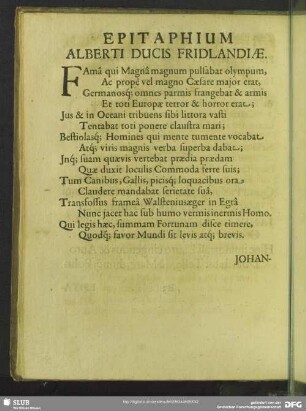 EPITAPHIUM
ALBERTI DUCIS FRIDLANDIÆ.
FAmâ qui Magnâ magnum pulsabar olympum,
Ac propè vel magno Cæsare major erat,
Germanosq; omnes parmis frangebat & armis
Et toti Europæ terror & horror erat;
Jus & in Oceani tribuens sibi littora vasti
Tentabat toti ponere claustra mari;
Bestiolasq; Homines qui mente tumente vocabat
Atq; viris magnis verba superba dabat;
Jnq; suam quævis vertebat prædia prædam
Quæ duxit loculis Commoda ferre suis;
Tum Canibus, Gallis, picisq; loquacibus ora
Claudere mandabat serietate suâ,
Transfossus frameâ Walsteniusæger in Egrâ
Nunc jacet hac sub humo vermis inermis Homo.
Qui legis hæc, summam Fortunam disce timere,
Quodq; favor Mundi sit levis atq; brevis.
JOHAN-
SLUB
Wir führen Wissen.
gefördert von der
Deutschen Forschungsgemeinschaft
DFG